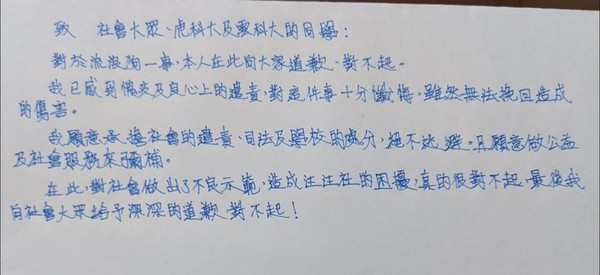 致 社會大眾、虎科大及雲科大的同學:
對於流浪狗一事,本人在此向大家道歉、對不起。
我已感到慚疚及良心上的譴責,對這件事十分懺悔,雖然無法挽回造成
的傷害。
我願意承擔社會的譴責、司法及學校的處分,絕不逃避。且願意做公益
及社會服務來彌補。
在此,對社會做出了不良示範,造成汪汪社的困擾,真的很對不起,最後我
自社會大眾給予深深的道歉,對不起!